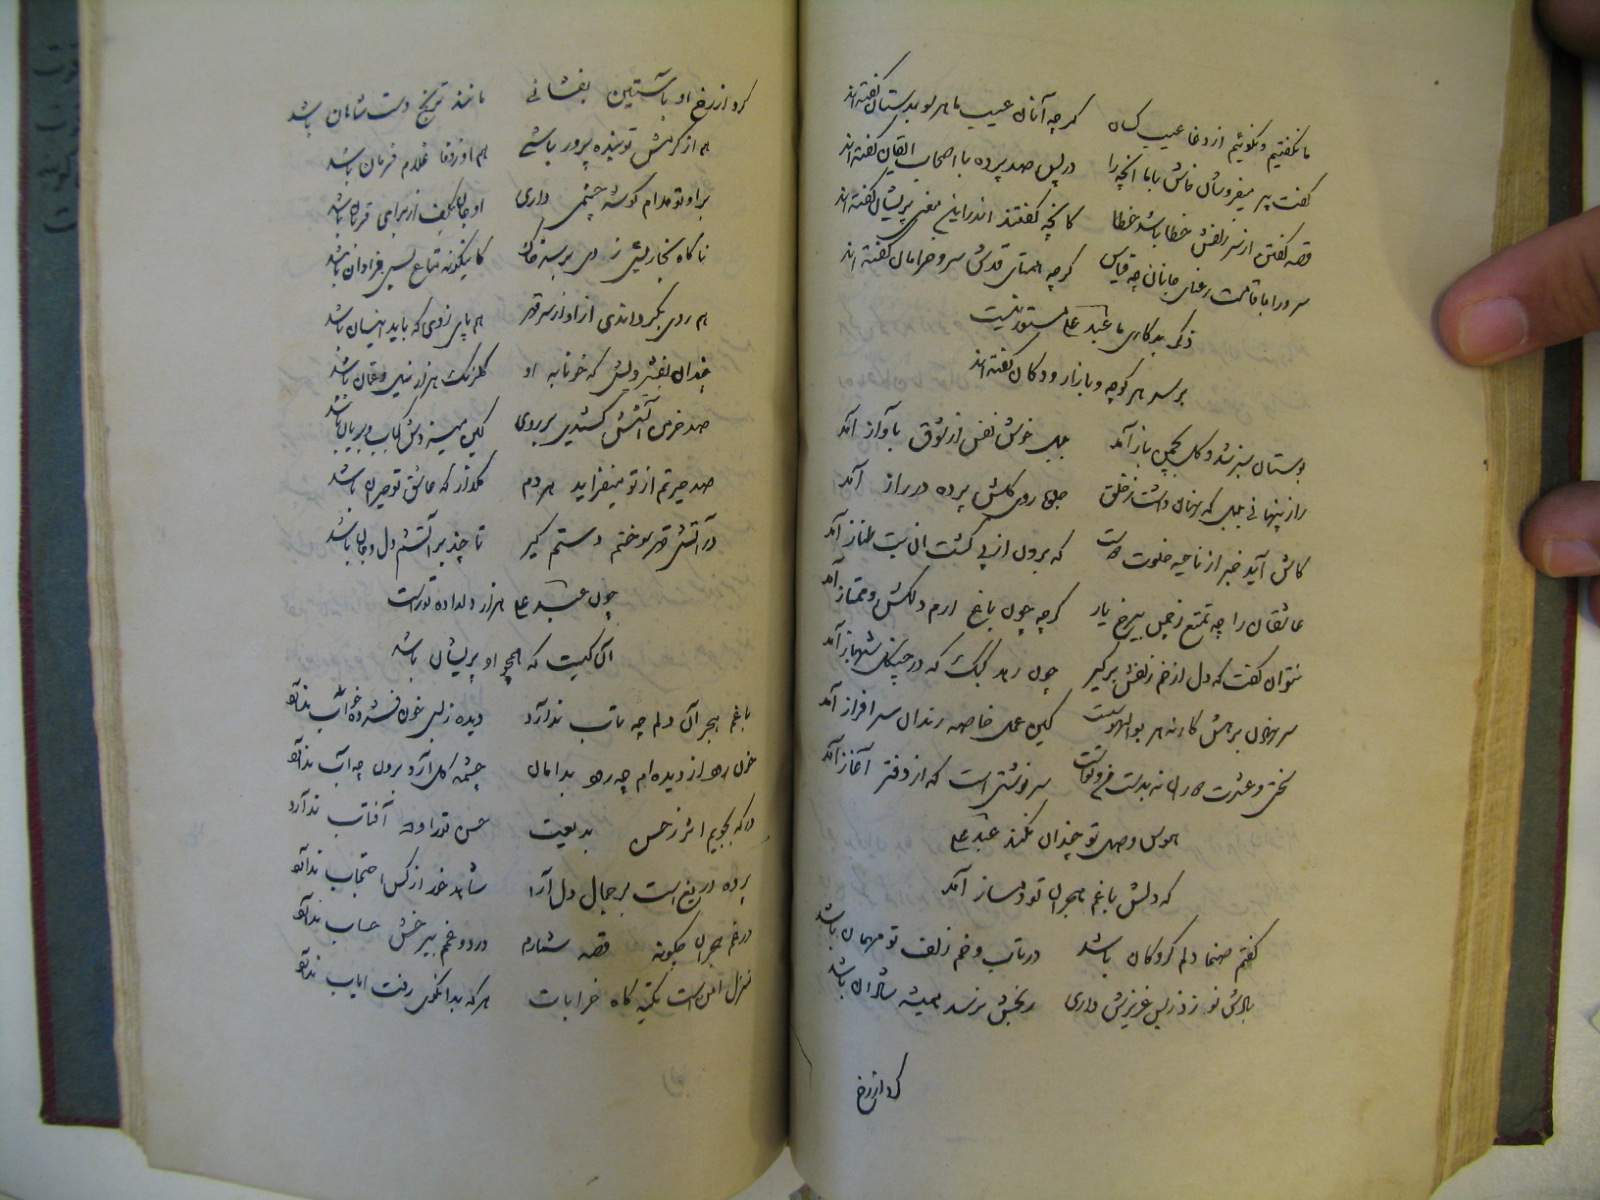 ما نگفتیم و نگوئیم از وفا عیب کسان گرچه آنان عیب ما هر سو بدستان گفته‌اند
گفت پیر میفروشان فاش با ما آنچه را در پس صد پرده با اصحاب ایقان گفته‌اند
قصه گفتن از سر زلفش خطا باشد خطا کانچه گفتند اندر این معنی پریشان گفته‌اند
سرو را با قامت رعنای جانان چه قیاس گرچه همتای قدش سرو خرامان گفته‌اند
ذکر بدکاری ما عبد علی مستور نیست
بر سر هر کوچه و بازار و دکان گفته‌اند
بوستان سبز شد و گل بچمن باز آمد بلبل خوش نفس از شوق بآواز آمد
راز پنهانی بلبل که نهان داشت ز خلق روی گلش پرده در راز آمد
کاش آید خبر از ناحیه خلوت که برون از پی گشت آن بت طناز آمد
عاشقان را چه تمتع ز چمن بی رخ یار گرچه چون باغ ارم دلکش و ممتاز آمد
نتوان گفت که دل از خم زلفش برگیر چون رهد کبک که در چنگل شهباز آمد
سر نهادن برهش کار نه هر بوالهوسیست کاین عمل خاصه رندان سرافراز آمد
سختی و عشرت نه بدست من و توست سرنوشتی است که از دفتر آغاز آمد
هوس وصل تو چندان نکند عبد علی
که دلش با غم هجران تو دمساز آمد
گفتم صنما دلم گروگان باشد در تاب و خم زلف تو مهمان باشد
عزیزش داری رنجش نرسد همیشه شادان باشد
گرد از رخ
گرد از رخ او بآستین بفشانی مانند ترنج دست شاهان باشد
هم از کرمش تو بنده پرور باشی هم او ز وفا غلام فرمان باشد
بر او تو مدام گوشه چشمی داری او جان بکف از برای قربان باشد
ناگاه بخاریش ز در بر بستی کاینگونه متاع بس فراوان باشد
هم روی بگرداندی از او از سر قهر هم پای زدی که باید اینسان باشد
چندان بفشردیش که خونابه او گلرنگ
صد خرمن آتشش کشیدی بر روی کاین سینه و دل کباب و بریان باشد
صد حیرتم از تو میفزاید هر دم مگذار که عاشق تو حیران باشد
در آتش قهر سوختم دستم گیر تا چند بر آتشم دل و جان باشد
چون عبد علی هزار دلداده توراست
آن کیست که همچو او پریشان باشد
با غم هجر آن دلم چه تاب ندارد دیده ز بس خون فسرده خواب ندارد
خون رود از دیده‌ام چه رود بدامان چشمه گل آرد برون چه آب ندارد
در که بجویم اثر ز حسن بدیعت حسن تو را آفتاب ندارد
پرده دریغ است بر جمال دل آرا شاهد خور از کس احتجاب ندارد
در غم هجران چگونه قصه شمارم درد و غم بیرخش حساب ندارد
منزل امن است تکیه گاه خرابات هر که بدانکوی رفت ایاب ندارد